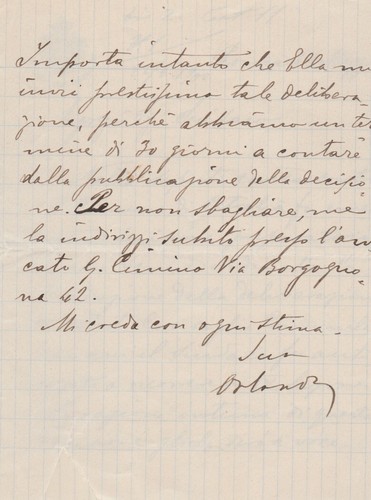 Importa intanto che Ella mi
invii prestissimo tale delibera-
zione, perché abbiamo un ter
mine di 30 giorni a contare
dalla pubblicazione della decisio-
ne. Per non sbagliare, me
la indirizzi subito presso l'avv
cato G. Cimino Via Borgogno-
na 42.
Mi creda con ogni stima.
Suo
Orlando